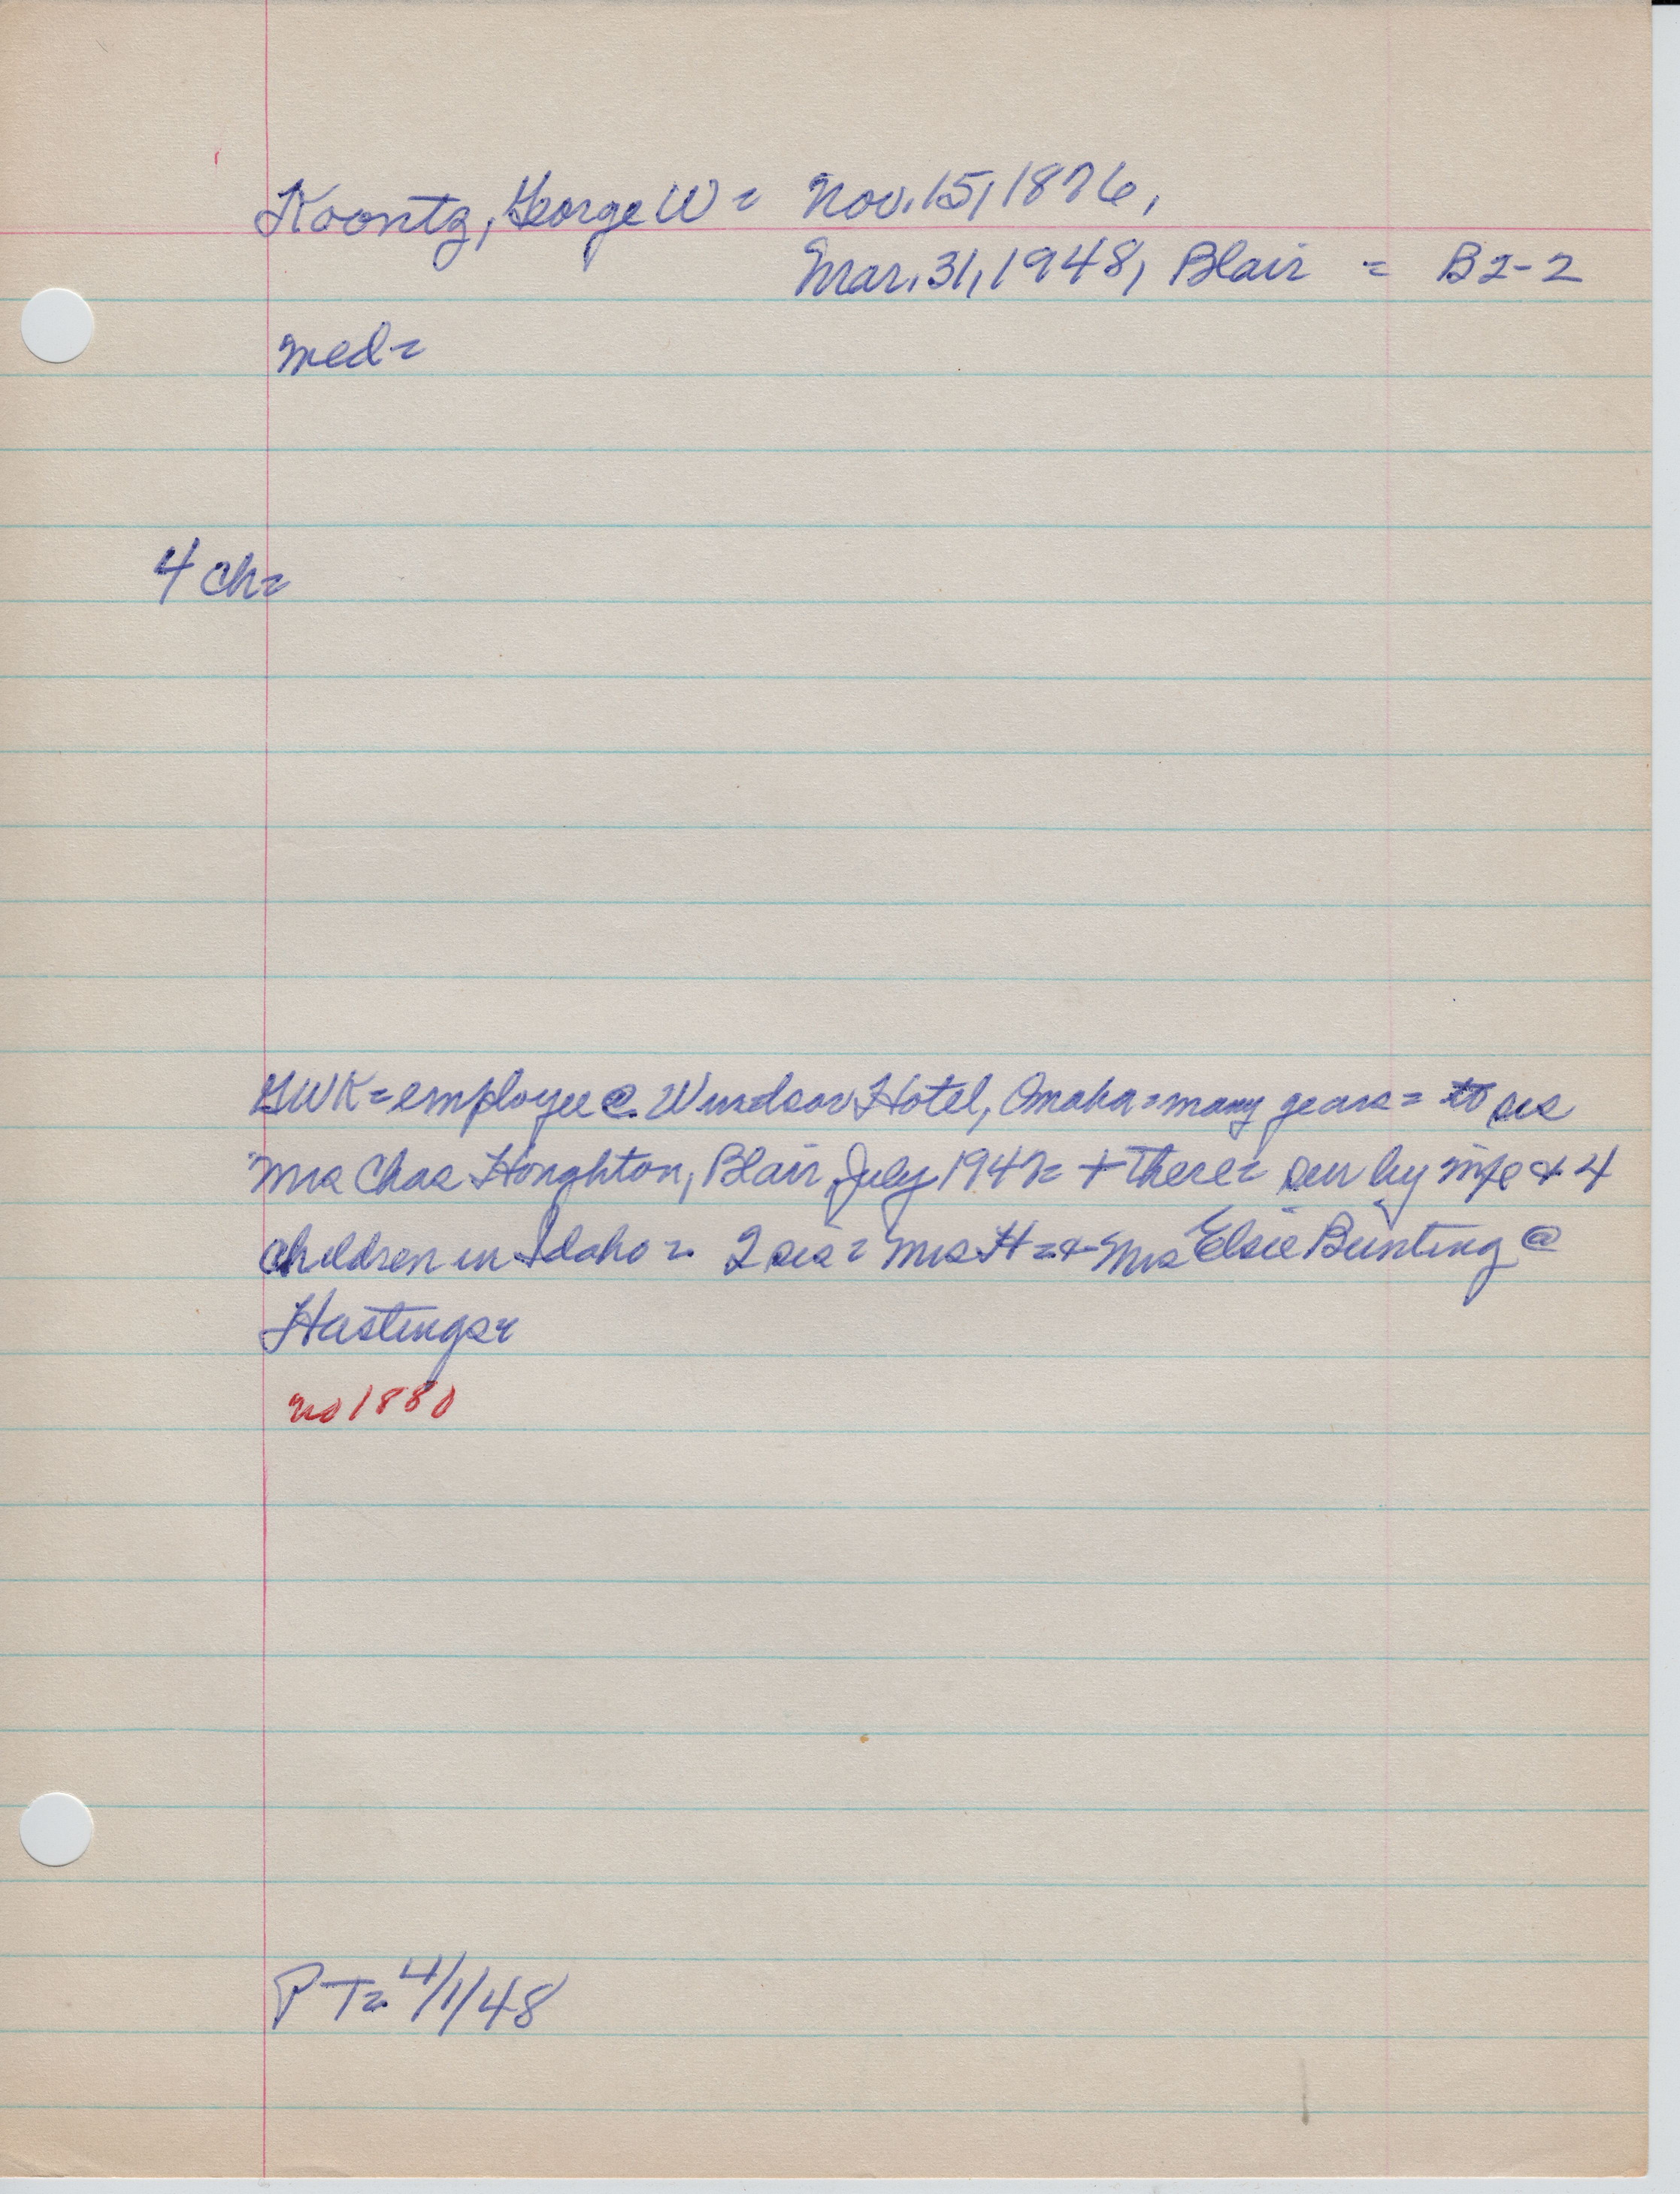 Koontz, George W = Nov. 15, 1876,
Mar. 31, 1948, Blair = B2-2
med=
4 ch=
GWK = employee @ Windsor Hotel, Omaha = many years = to sis
Mrs Chas Houghton, Blair, July 1947 = + there = sur by wife & 4
children in Idaho = 2 sis = Mrs H = & Mrs Elsie Bunting @
Hastings =
no 1880
PT = 4/1/48